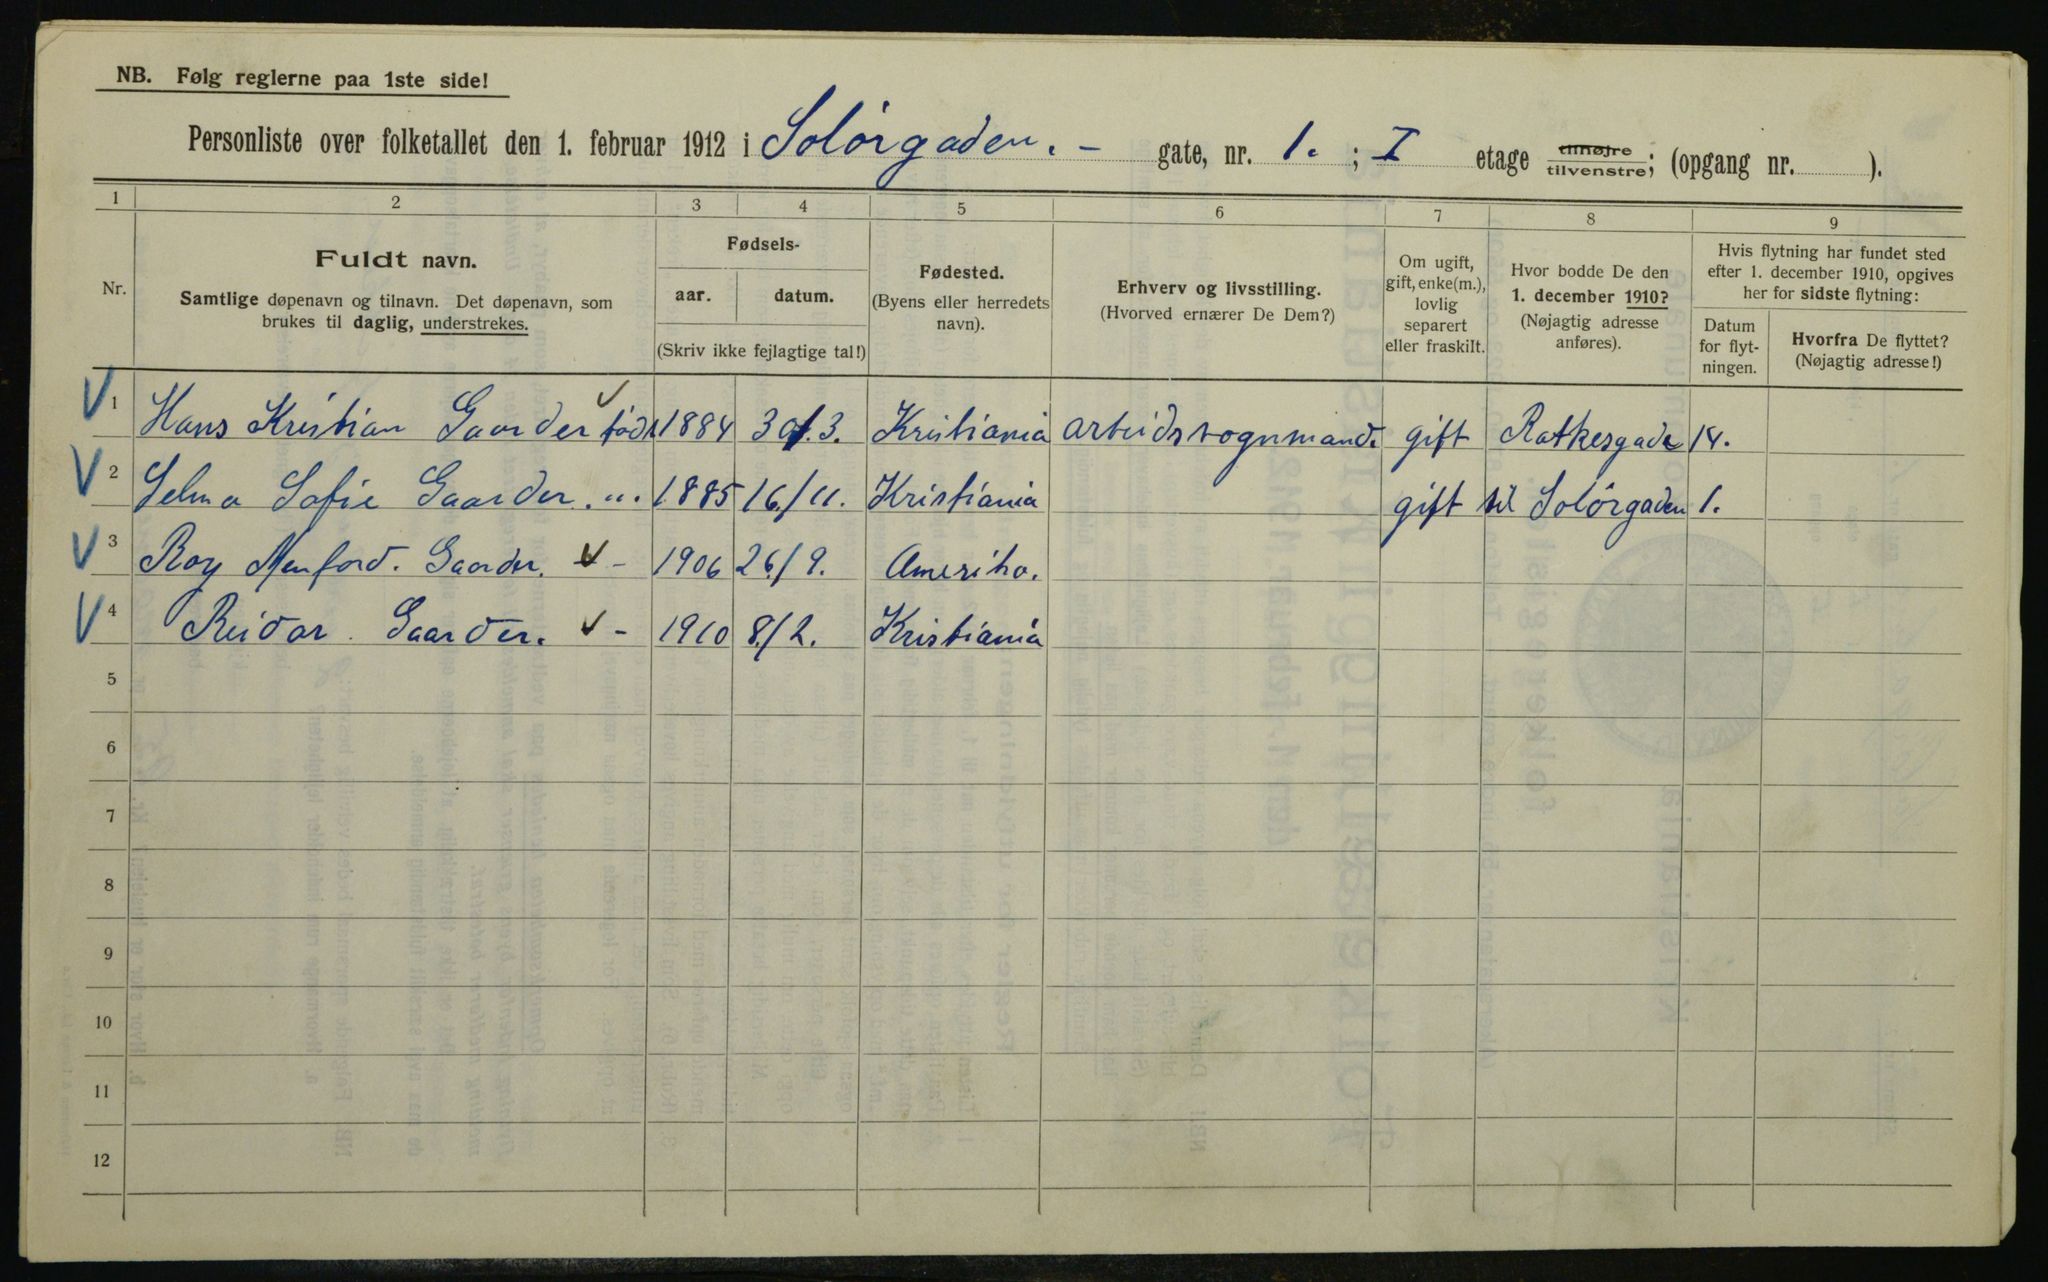 NB. Følg reglerne paa 1ste side!
Personliste over folketallet den 1. februar 1912 i Solörgaden. - gate, nr. 1. ; I etage tilhøjre tilvenstre; (opgang nr. ).
1 2 3 4 5 6 7 8 9
Nr.
Fuldt navn.
Samtlige døpenavn og tilnavn. Det døpenavn, som
brukes til daglig, understrekes.
Fødsels-
aar. datum.
(Skriv ikke fejlagtige tal!)
Fødested.
(Byens eller herredets
navn).
Erhverv og livsstilling.
(Hvorved ernærer De Dem?)
Om ugift,
gift, enke(m.),
lovlig
separert
eller fraskilt.
Hvor bodde De den
1. december 1910?
(Nøjagtig adresse
anføres).
Hvis flytning har fundet sted
efter 1. december 1910, opgives
her for sidste flytning:
Datum
for flyt-
ningen.
Hvorfra De flyttet?
(Nøjagtig adresse!)
1 Hans Kristian Gaarder föd 1884 30/3. Kristiania arbeidsvognmand. gift Ratkesgade 14.
2 Selma Sofie Gaarder. „. 1885 16/11. Kristiania gift til Solörgaden 1.
3 Roy Gaarder. - 1906 26/9. Amerika.
4 Reidar Gaarder. - 1910 8/2. Kristiania
5
6
7
8
9
10
11
12